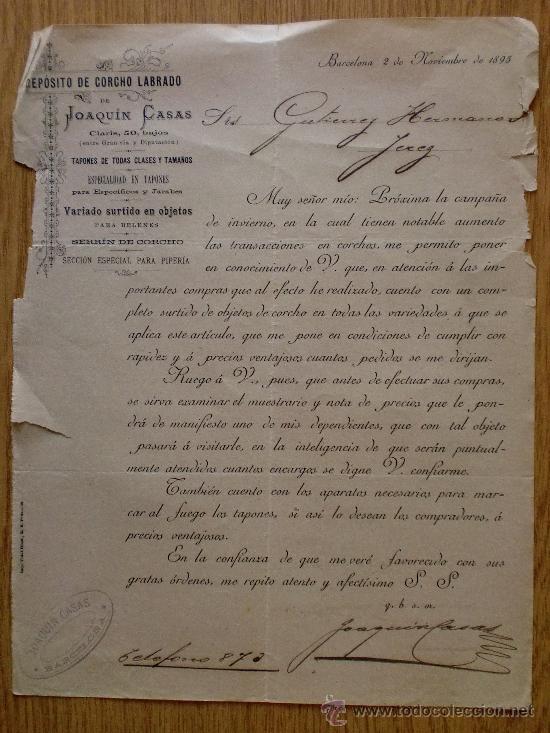 Barcelona 2 de Noviembre de 1895
DEPÓSITO DE CORCHO LABRADO
DE
JOAQUÍN CASAS
Claris, 50, bajos
(entre Gran-vía y Diputación)
TAPONES DE TODAS CLASES Y TAMAÑOS
ESPECIALIDAD EN TAPONES
para Específicos y Jarabes
Variado surtido en objetos
PARA BELENES
SERRÍN DE CORCHO
SECCIÓN ESPECIAL PARA PIPERÍA
Srs Gutierrez Hermanos
Jerez
Muy señor mío: Próxima la campaña
de invierno, en la cual tienen notable aumento
las transacciones en corchos, me permito poner
en conocimiento de V. que, en atención á las im-
portantes compras que al efecto he realizado, cuento con un com-
pleto surtido de objetos de corcho en todas las variedades á que se
aplica este artículo, que me pone en condiciones de cumplir con
rapidez y á precios ventajosos cuantos pedidos se me dirijan.
Ruego á V., pues, que antes de efectuar sus compras,
se sirva examinar el muestrario y nota de precios que le pon-
drá de manifiesto uno de mis dependientes, que con tal objeto
pasará á visitarle, en la inteligencia de que serán puntual-
mente atendidos cuantos encargos se digne V. confiarme.
También cuento con los aparatos necesarios para mar-
car al fuego los tapones, si así lo desean los compradores, á
precios ventajosos.
En la confianza de que me veré favorecido con sus
gratas órdenes, me repito atento y afectísimo S. S.
q. b. s. m.
Joaquín Casas
Telefono 873
JOAQUIN CASAS
BARCELONA
todocoleccion.net